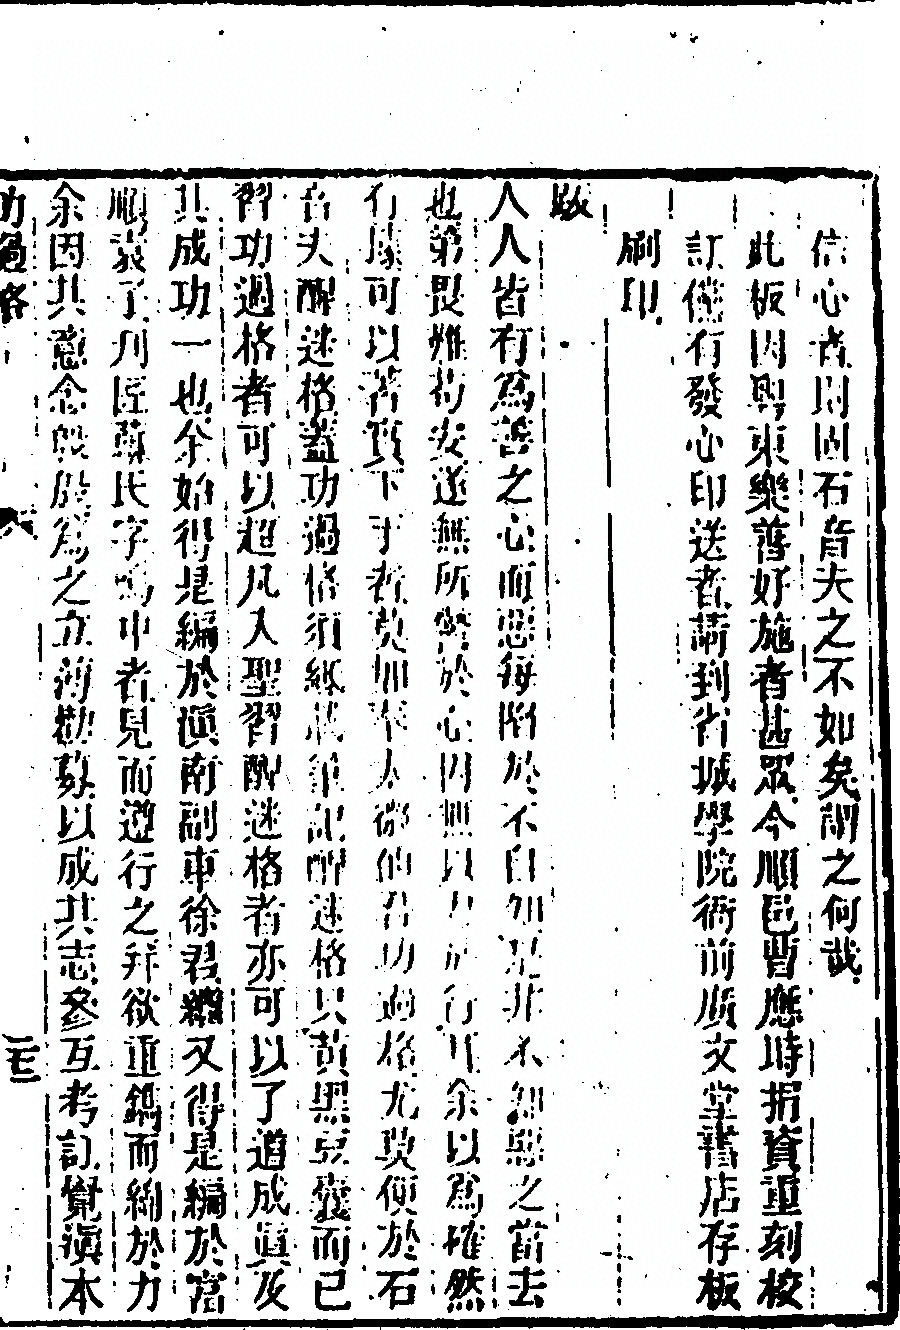 信心者則固石音夫之不如矣謂之何哉
此板因粵東樂善好施者甚眾今順邑曹應時捐資重刻校
訂儻有發心印送者請到省城學院衙前廣文堂書店存板
刷印
跋
人人皆有爲善之心而惡每陷於不自知是非不知惡之當去
也第畏難苟安遂無所警於心因無以力於行耳余以爲確然
有據可以着實下手者莫如奉太微的君功過格尤莫便於石
音夫醒迷格蓋功過格須紙裁筆記醒迷格只黃黑豆囊而已
習功過格者可以超凡入聖習醒迷格者亦可以了道成眞及
其成功一也余始得是編於滇南副車徐君纘又得是編於富
順裴了刋匠蘇氏字鳴中者見而遵行之幷欲重鐫而綿於力
余因其意念殷殷爲之立薄勸募以成其志參互考訂覺滇本
功過格
三